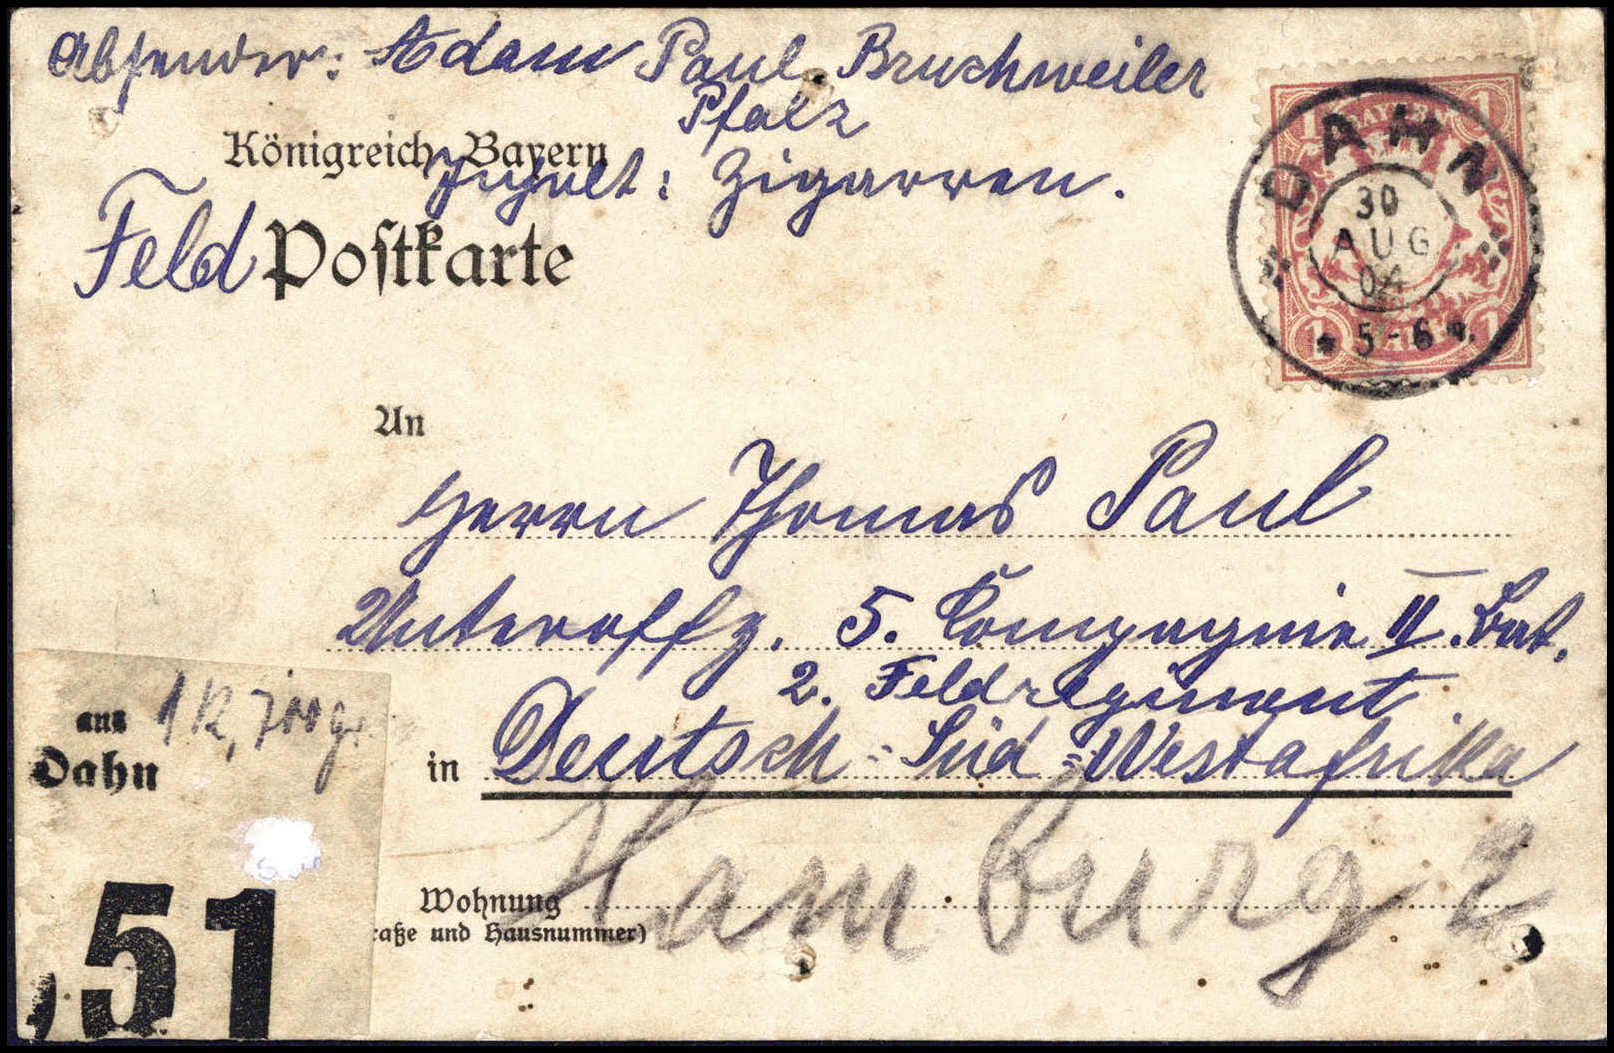 Absender: Adam Paul. Bruchweiler
Pfalz
Königreich Bayern
Inhalt: Zigarren.
Feld Postkarte
1 BAYERN 1
DAHN
30
AUG
04
5-6
1 1
An
Herrn Thomas Paul
Unteroffz. 5. Compagnie II. Bat.
2. Feldregiment
in Deutsch-Süd-Westafrika
aus 1 K, 700 gr.
Dahn
51
Hamburg 2
Wohnung
aße und Hausnummer)